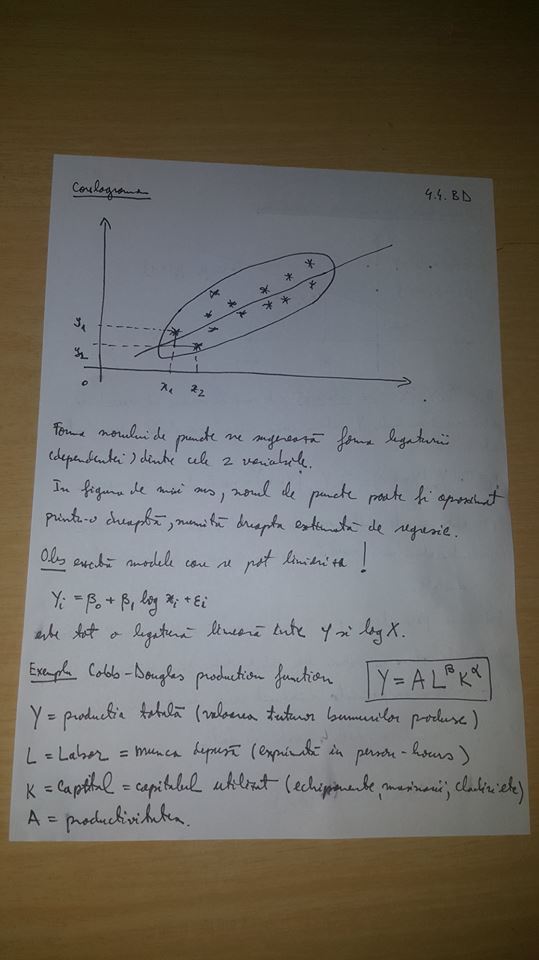 Corelograma
4.4. BD
y₁
y₂
0
x₁
x₂
Forma norului de puncte ne sugerează forma legăturii
(dependenței) dintre cele 2 variabile.
In figura de mai sus, norul de puncte poate fi aproximat
printr-o dreaptă, numită dreapta estimată de regresie.
Obs există modele care se pot liniariza!
Yi = β₀ + β₁ log xi + εi
este tot o legătură lineară între Y si log X.
Exemplu Cobbs-Douglas production function
Y = A L^β K^α
Y = productia totală (valoarea tuturor bunurilor produse)
L = Labor = munca depusă (exprimată in person-hours)
K = capital = capitalul utilizat (echipamente, masinarii, cladiri etc)
A = productivitatea.